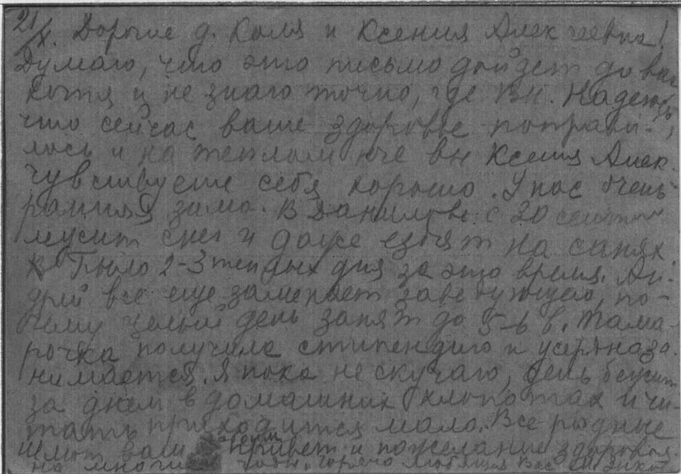 21/X. Дорогие д. Коля и Ксения Алексеевна!
Думаю, что это письмо дойдет до вас
хотя и не знаю точно, где вы. Надеюсь
что сейчас ваше здоровье поправи-
лось и на теплом юге вы Ксения Алек.
чувствуете себя хорошо. У нас очень
ранняя зима. В Данилове с 20 сентября
снег и даже ездят на санях
Было 2-3 теплых дня за это время. Ан-
дрей все еще замещает заведующего, по-
чему целый день занят до 5-6 в. Тама-
рочка получила стипендию и усердно за-
нимается. Я пока не скучаю, день бежит
за днем в домашних хлопотах и чи-
тать приходится мало. Все родные
шлют вам привет и пожелание здоровья
на многие годы. Горячо любящая вас